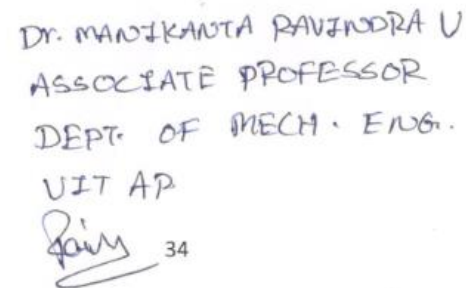 Dr. MANIKANTA RAVINDRA U
ASSOCIATE PROFESSOR
DEPT. OF MECH. ENG.
VIT AP
34